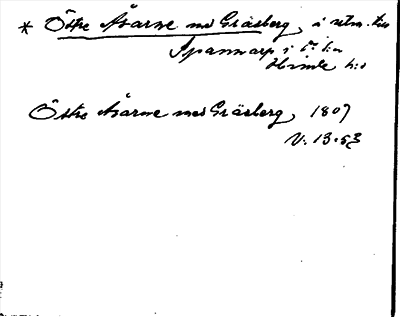 * Östre Åsarne med Gräsberg, å utm. till
Spannarp i d:o s:n
Himle h:d
Östre Åsarne med Gräsberg, 1807
V. 13.53